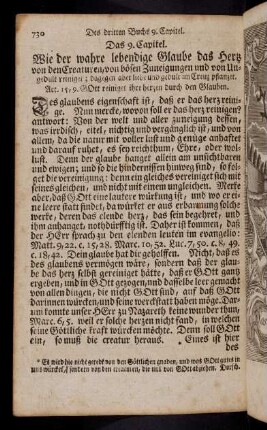 730 Des dritten Buchs 9. Capitel.
Das 9. Capitel.
Wie der wahre lebendige Glaube das Hertz
von den Creaturen, von bösen Zuneigungen und von Un-
gedult reiniget; dagegen aber liebe und gedult im Creutz pflantzet.
Act. 15, 9. GOtt reiniget ihre hertzen durch den Glauben.
Des glaubens eigenschaft ist, daß er das hertz reini-
ge. Nun mercke, wovon soll er das hertz reinigen?
antwort: Von der welt und aller zuneigung dessen,
was irrdisch, eitel, nichtig und vergänglich ist, und von
allem, da die natur mit voller lust und genüge anhaftet
und darauf ruhet, es sey reichthum, Ehre, oder wol-
lust. Denn der glaube hanget allein am unsichtbaren
und ewigen; und so die hindernissen hinweg sind, so fol-
get die einigung leicht. Denn alle einigung geschicht
mit gleichen, und nicht mit einem ungleichen. Mercke
aber, daß GOtt eine lautere würckung ist; und wo er ei-
ne leere statt findet, da würcket er aus erbarmung solche
wercke, deren das elende hertz, das sein begehret, und
ihm anhanget, nothdürftig ist. Daher ist kommen, daß
der HErr sprach zu den elenden leuten im evangelio:
Matt. 9, 22. c. 15, 28. Marc. 10, 52. Luc. 7, 50. c. 8, 49.
c. 18, 42. Dein glaube hat dir geholffen. Nicht, daß es
des glaubens vermögen wär, sondern daß der glau-
be das hertz selbst gereiniget hätte, daß er GOtt gantz
ergeben, und in GOtt gezogen, und daffelbe gantz leer
von allen dingen, die nicht GOtt sind, auf daß GOtt
darinnen würcken, und seine werckstatt haben möge. Dar-
um konte unser HErr zu Nazareth keine wunder thun,
Marc. 6, 5. weil er solche hertzen nicht fand, in welchen
seine Göttliche kraft würcken möchte. Denn soll GOtt
ein, so muß die creatur heraus. * Eines ist hier
des
* Es wird hie nicht geredt von den Göttlichen gnaden, und was GOtt gutes in
uns würcket, sondern von den creaturen, die uns von GOtt abziehen.